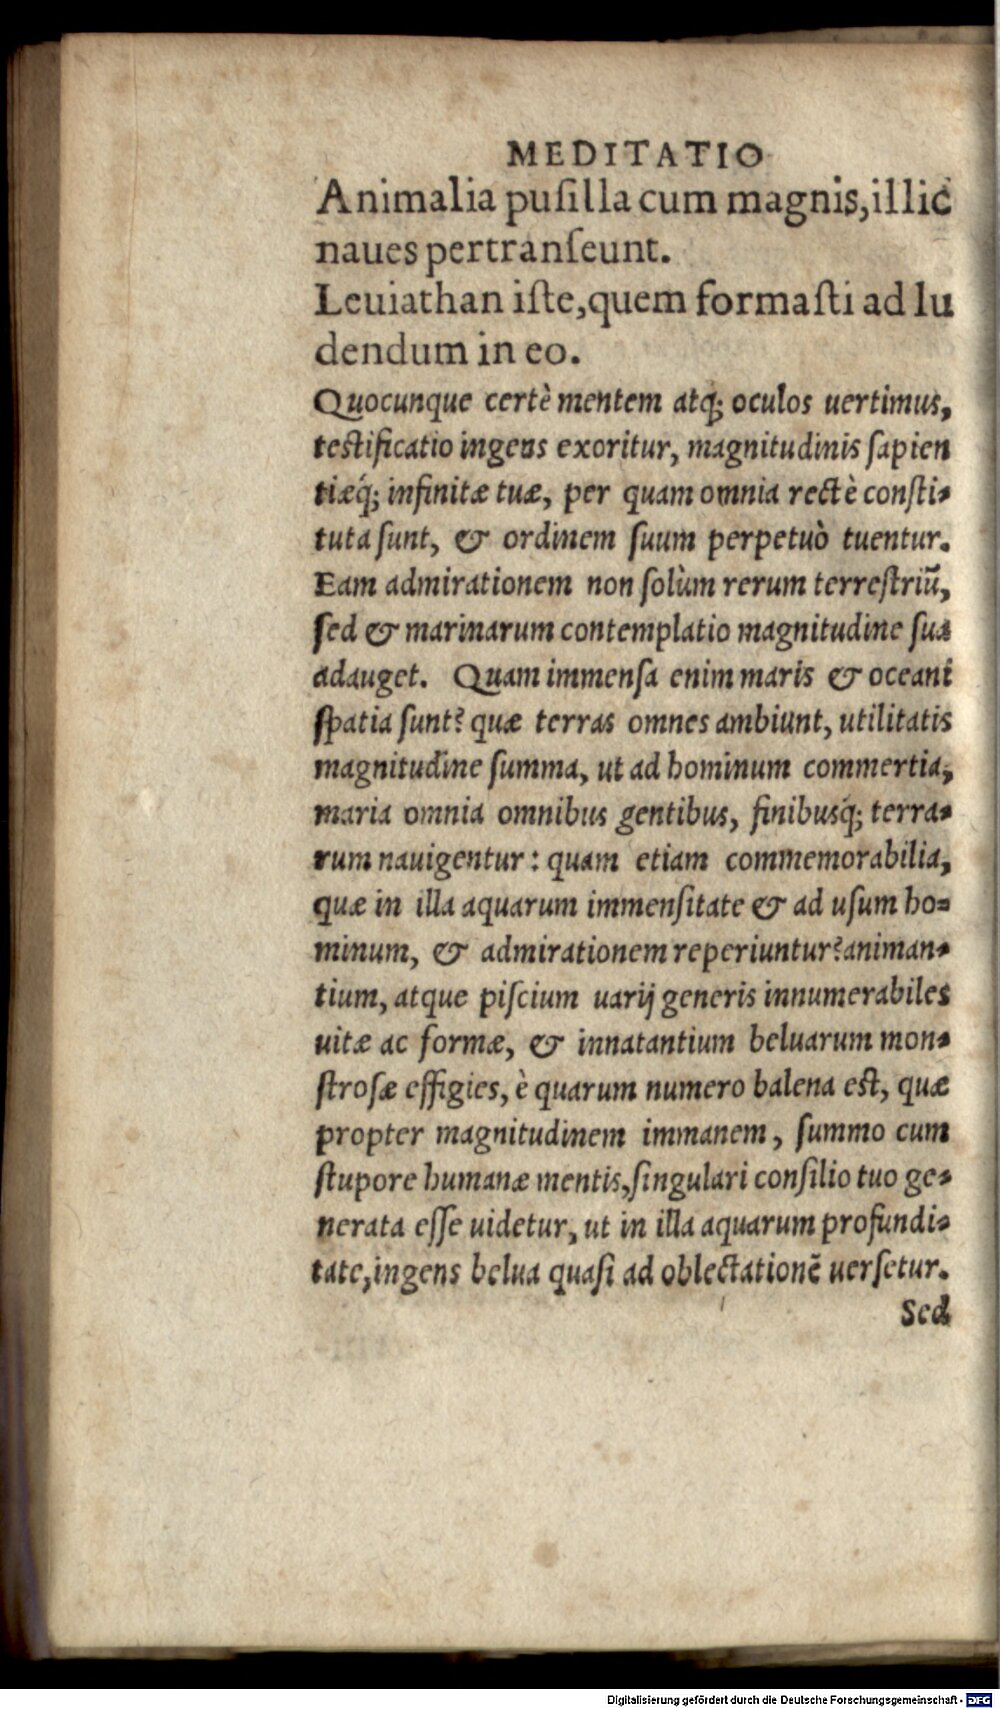 MEDITATIO
Animalia puſilla cum magnis, illic
naues pertranſeunt.
Leuiathan iſte, quem formaſti ad lu
dendum in eo.
Quocunque certè mentem atq́; oculos uertimus,
teſtificatio ingens exoritur, magnitudinis ſapien
tiæq́; infinitæ tuæ, per quam omnia rectè conſti-
tuta ſunt, & ordinem ſuum perpetuò tuentur.
Eam admirationem non ſolùm rerum terreſtriũ,
ſed & marinarum contemplatio magnitudine ſua
adauget. Quam immenſa enim maris & oceani
ſpatia ſunt? quæ terras omnes ambiunt, utilitatis
magnitudine ſumma, ut ad hominum commertia,
maria omnia omnibus gentibus, finibusq́; terra-
rum nauigentur: quam etiam commemorabilia,
quæ in illa aquarum immenſitate & ad uſum ho-
minum, & admirationem reperiuntur? animan-
tium, atque piſcium uarij generis innumerabiles
uitæ ac formæ, & innatantium beluarum mon-
ſtroſæ effigies, è quarum numero balena eſt, quæ
propter magnitudinem immanem, ſummo cum
ſtupore humanæ mentis, ſingulari conſilio tuo ge-
nerata eſſe uidetur, ut in illa aquarum profundi-
tate, ingens belua quaſi ad oblectationẽ uerſetur.
Sed
Digitalisierung gefördert durch die Deutsche Forschungsgemeinschaft - DFG